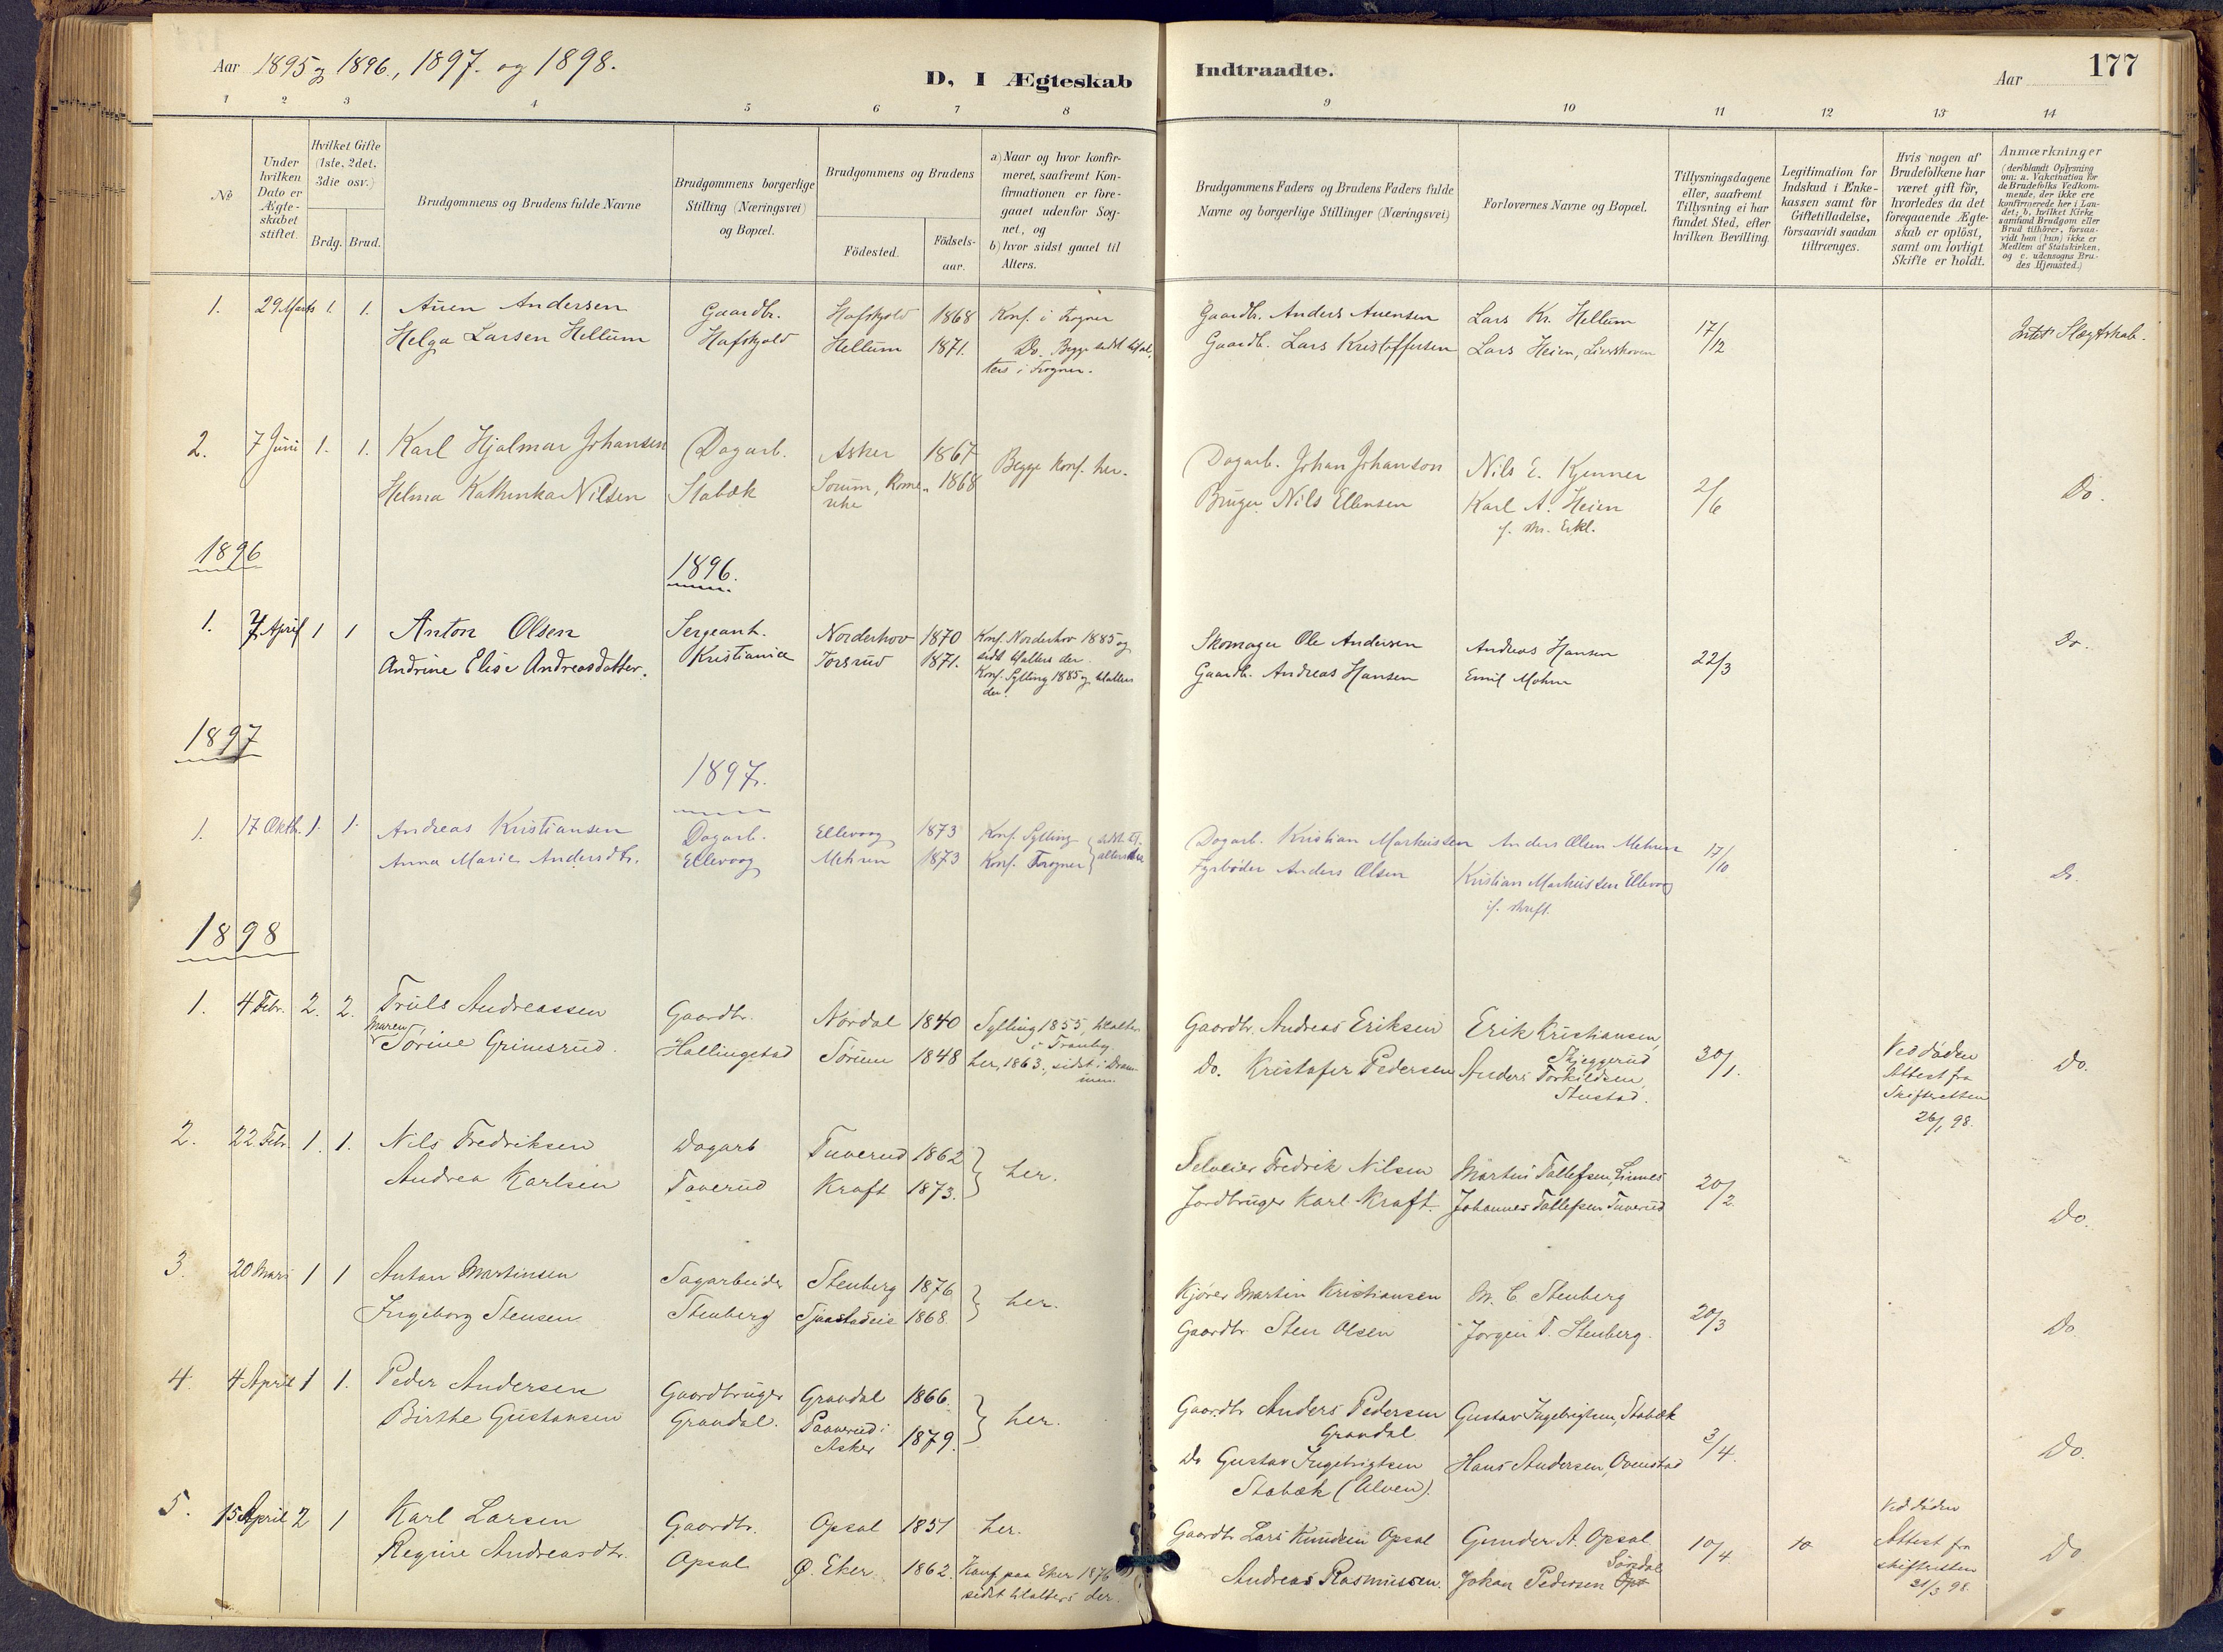 Aar 1895 og 1896, 1897. og 1898.
D, I Ægteskab
Indtraadte.
Aar
177
1 2 3 4 5 6 7 8 9 10 11 12 13 14
No
Under
hvilken
Dato er
Ægte-
skabet
stiftet.
Hvilket Gifte
(1ste, 2det,
3die osv.)
Brdg. Brud.
Brudgommens og Brudens fulde Navne
Brudgommens borgerlige
Stilling (Næringsvei)
og Bopæl.
Brudgommens og Brudens
Födested.
Födsels-
aar.
a) Naar og hvor konfir-
meret, saafremt Kon-
firmationen er fore-
gaaet udenfor Sog-
net, og
b) hvor sidst gaaet til
Alters.
Brudgommens Faders og Brudens Faders fulde
Navne og borgerlige Stillinger (Næringsvei)
Forlovernes Navne og Bopæl.
Tillysningsdagene
eller, saafremt
Tillysning ei har
fundet Sted, efter
hvilken Bevilling.
Legitimation for
Indskud i Enke-
kassen samt for
Giftetilladelse,
forsaavidt saadan
tiltrænges.
Hvis nogen af
Brudefolkene har
været gift för,
hvorledes da det
foregaaende Ægte-
skab er oplöst,
samt om lovligt
Skifte er holdt.
Anmærkninger
(deriblandt Oplysning
om: a. Vakcination for
de Brudefolks Vedkom-
mende, der ikke ere
konfirmerede her i Lan-
det; b. hvilket Kirke
samfund Brudgom eller
Brud tilhörer, forsaa-
vidt han (hun) ikke er
Medlem af Statskirken,
og c. udensogns Bru-
des Hjemsted.)
1. 29 Marts 1. 1. Auen Andersen Gaardbr. Hafskjold 1868 Konf. i Frogner
Helga Larsen Hellum Hafskjold Hellum 1871. Do. Begge sidst til al-
ters i Frogner.
Gaardb. Anders Auensen Lars Kr. Hellum 17/12 Intet Slægtskab.
Gaardb. Lars Kristoffersen Lars Heien, Lierskoven
2. 7 Juni 1. 1. Karl Hjalmar Johansen Dagarb. Asker 1867 Begge konf. her.
Helma Kathinka Nilsen Stabæk Sorum, Rome- 1868
rike
Dagarb. Johan Johanson Nils E. Kjenner 2/6 Do.
Bruger Nils Ellensen Karl A. Heien
if. skr. Erkl.
1896
1896.
1. 7 April 1 1 Anton Olsen Sergeant. Norderhov 1870 Konf. Norderhov 1885 og
sidst tilalters der.
Andrine Elise Andreasdatter. Kristiania Torsrud 1871. Konf. Sylling 1885 og tilalters
der.
Skomager Ole Andersen Andreas Hansen 22/3 Do.
Gaardb. Andreas Hansen Emil Mohn
1897
1897.
1. 17 Oktb. 1. 1. Andreas Kristiansen Dagarb. Ellevog 1873 Konf. Sylling sidst til-
Anna Marie Andersdtr. Ellevog Mehren 1873 Konf. Frogner alters her
Dagarb. Kristian Markussen Anders Olsen Mehren 17/10 Do.
Fyrbøder Anders Olsen Kristian Markussen Ellevog
if. skrift.
1898
1. 4 Febr. 2. 2. Truls Andreassen Gaardbr. Nordal 1840 Sylling 1855, tilalters
i Tranby.
Maren
Sørine Grimsrud. Hallingstad Sørum 1848 her, 1863, sidst i Dram-
men.
Gaardbr. Andreas Eriksen Erik Kristiansen,
Skjeggerud
Do. Kristofer Pedersen Anders Torkildsen,
Stustad.
30/1. Ved døden
Attest fra
Skifteretten
26/1 98. Do.
2. 22 Febr. 1. 1. Nils Fredriksen Dagarb Tuverud 1862 her.
Andrea Karlsen Taverud Kraft 1873.
Selveier Fredrik Nilsen Martin Tollefsen, Linnes 20/2. Do.
Jordbruger Karl Kraft. Johannes Tollefsen Tuverud
3. 20 Mars 1 1 Anton Martinsen Sagarbeider Stenberg 1876 her.
Ingeborg Stensen Stenberg Sjaastadeie 1868
Kjører Martin Kristiansen M. C. Stenberg 20/3 Do.
Gaardbr Sten Olsen Jørgen T. Stenberg.
4. 4 April 1 1. Peder Andersen Gaardbruger Grandal 1866. her.
Birthe Gustavsen Grandal. Paaverud i 1879.
Asker
Gaardbr Anders Pedersen Gustav Ingebrigtsen, Stabæk
Grandal
Do Gustav Ingebrigtsen Hans Andersen, Ovenstad 3/4. Do.
Stabæk (Ulven).
5. 15 April 2 1 Karl Larsen Gaardbr. Opsal 1851 her.
Regine Andreasdtr. Opsal Ø. Eker. 1862. Konf paa Eker 1876
sidst tilalters der.
Gaardbr Lars Knudsen Opsal Gunder A. Opsal 10/4. 10 Ved døden
Andreas Rasmussen. Johan Pedersen Sørsdal Attest fra
skifteretten
21/3 98. Do